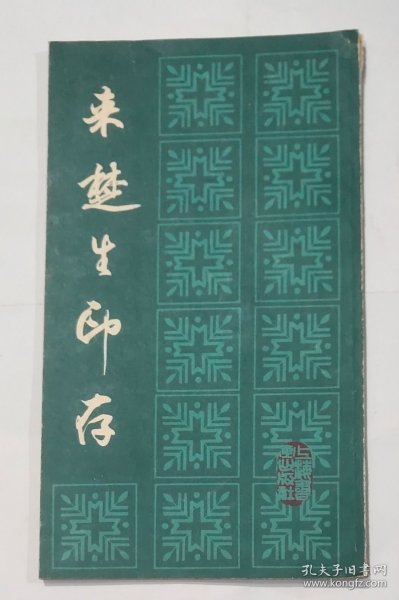 来楚生印存
上海書画出版社
孔夫子旧书网
www.kongfz.com